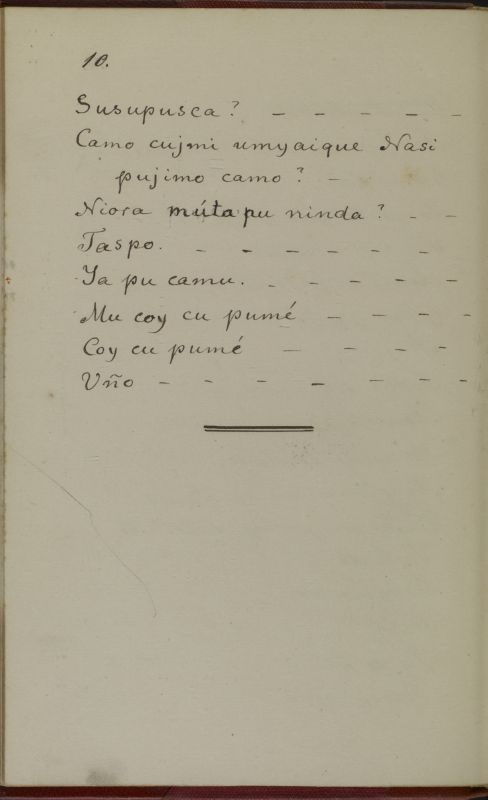 10.
Susupusca? - - - - -
Camo cujmi umyaique Nasi
pujimo camo? -
Niora múta pu ninda? - -
Taspo. - - - - - -
Ya pu camu. - - - - -
Mu coy cu pumé - - - -
Coy cu pumé - - - -
Uño - - - - - - -